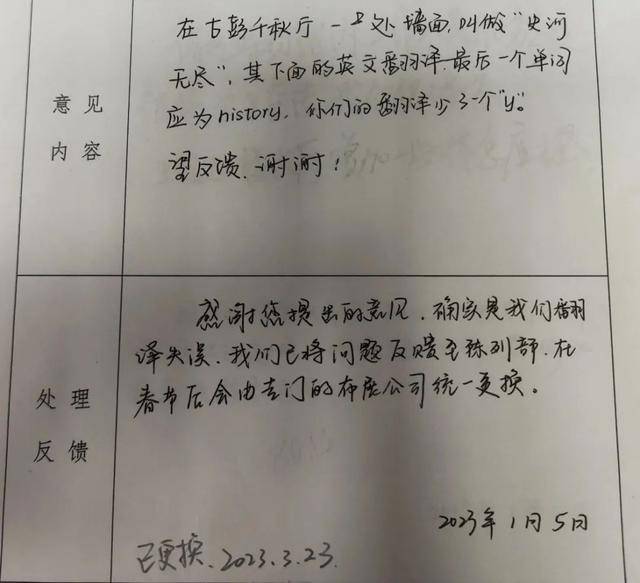 意见
内容
在古彭千秋厅一处墙面,叫做“史河
无尽”,其下面的英文翻译最后一个单词
应为history,你们的翻译少了一个“y”。
望反馈.谢谢!
处理
反馈
感谢您提出的意见,确实是我们翻
译失误.我们已将问题反馈至陈列部.在
春节后会由专门的布展公司统一更换。
2023年1月5日
已更换.2023.3.23.